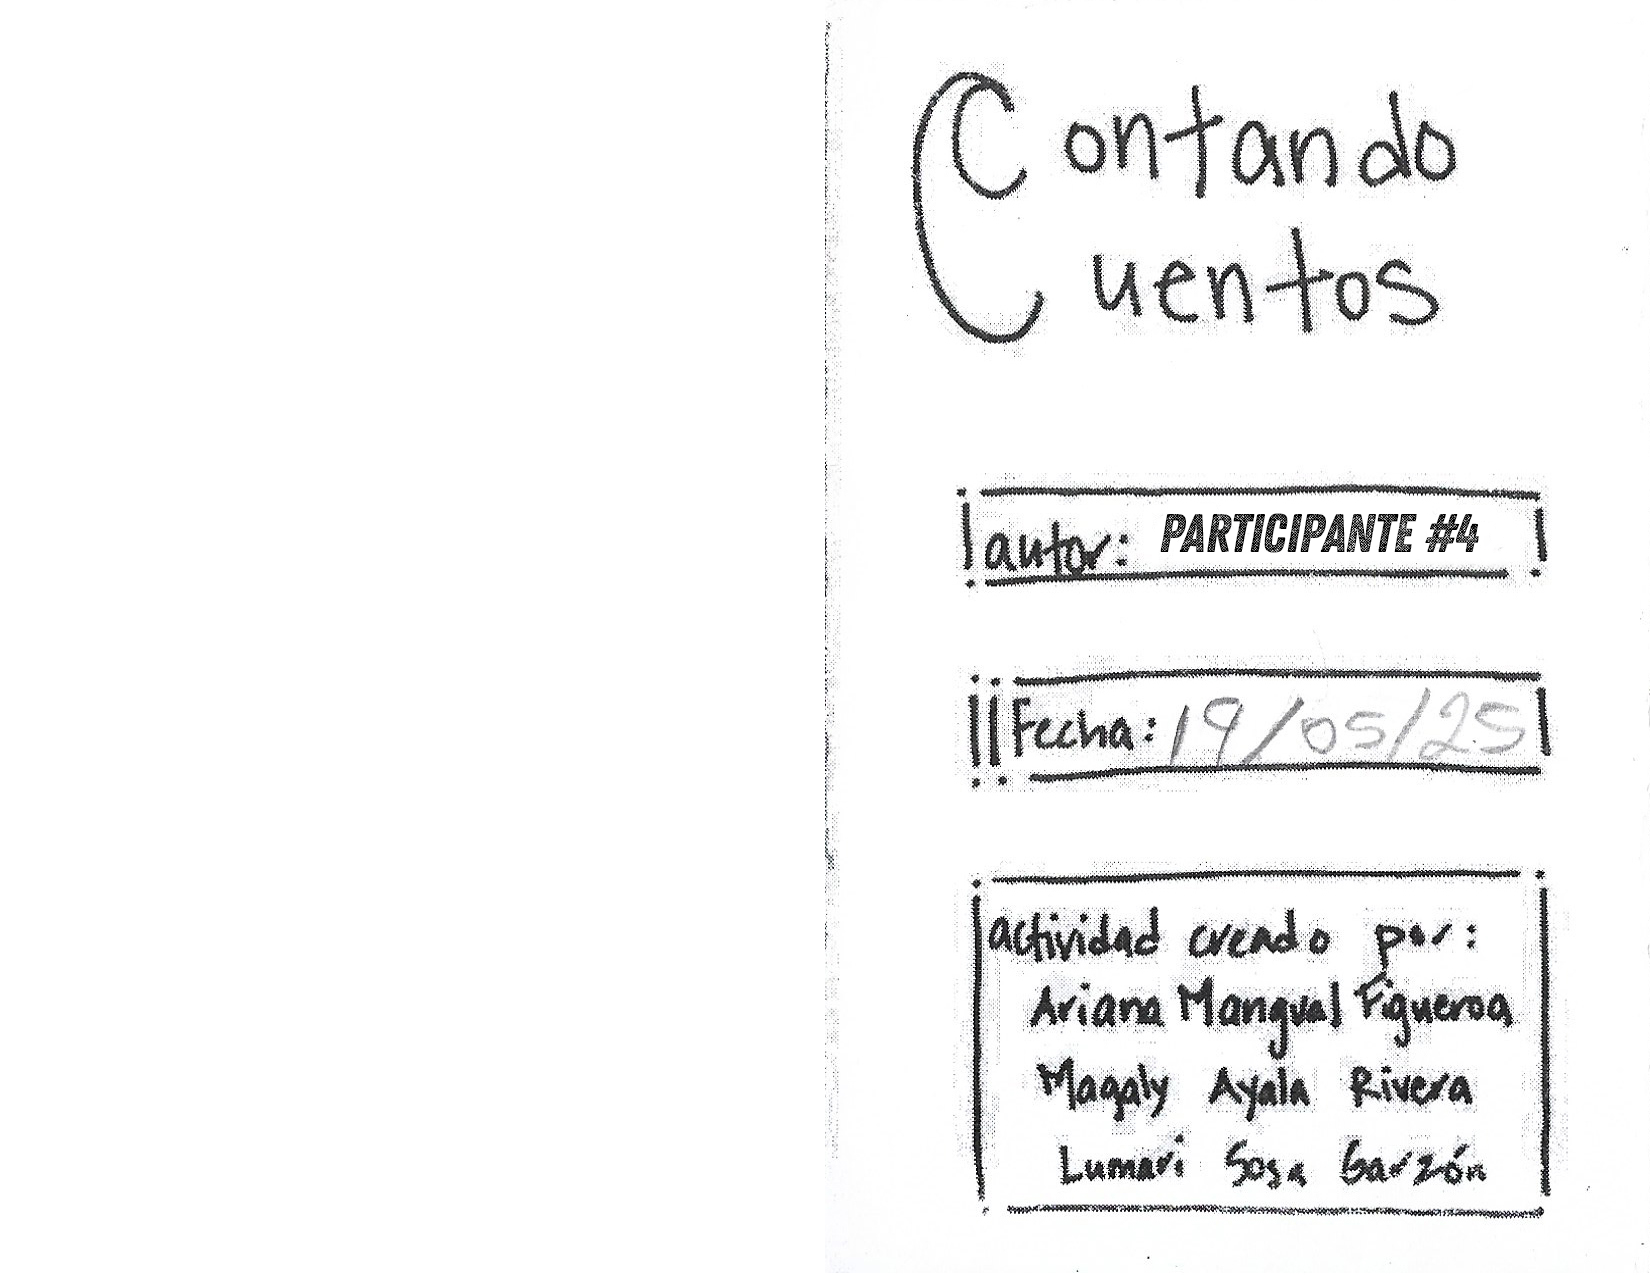 Contando
Cuentos
autor: PARTICIPANTE #4
Fecha: 19/05/25
actividad creado por:
Ariana Mangual Figueroa
Magaly Ayala Rivera
Lumari Sosa Garzón